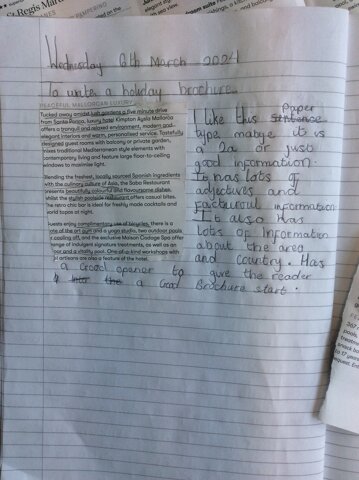 St Regis Mard
PAMPERING
Wednesday 6th March 2024
To write a holiday brochure.
PEACEFUL MALLORCAN LUXURY
Tucked away amidst lush gardens a five minute drive
from Santa Ponsa, luxury hotel Kimpton Aysla Mallorca
offers a tranquil and relaxed environment, modern and
elegant interiors and warm, personalised service. Tastefully
designed guest rooms with balcony or private garden,
mixes traditional Mediterranean style elements with
contemporary living and feature large floor-to-ceiling
windows to maximise light.
Blending the freshest, locally sourced Spanish ingredients
with the culinary culture of Asia, the Saba Restaurant
presents beautifully colourful and flavoursome dishes,
whilst the stylish poolside restaurant offers casual bites.
The retro chic bar is ideal for freshly made cocktails and
world tapas at night.
uests enjoy complimentary use of bicycles, there is
one of the art gym and a yoga studio, two outdoor pools
cooling off, and the exclusive Maison Codage Spa offer
ange of indulgent signature treatments, as well as an
oor and a vitality pool. One-of-a-kind workshops with
l artisans are also a feature of the hotel.
I like this Sentence Paper
type mabye it is
a 2a or just
good information.
It has lots of
adjectives and
facturoul information.
It also Has
Lots of Information
about the area
and country. Has
a Groad opener to give the reader
a Goad Brochure start.